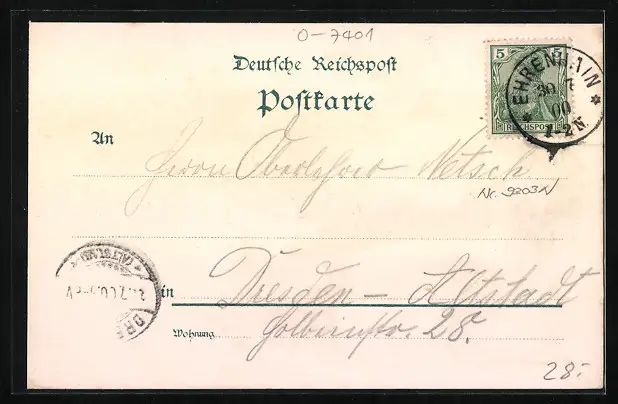 0-7401
Deutsche Reichspost
Postkarte
5 5
REICHSPOST
* EHRENHAIN *
30 7
00
1-2N.
An
Herrn Oberlehrer Netsch
Nr. 9203N
(ALTSTADT)
DRE
in Dresden - Altstadt
Wohnung Holbeinstr. 28.
28.-